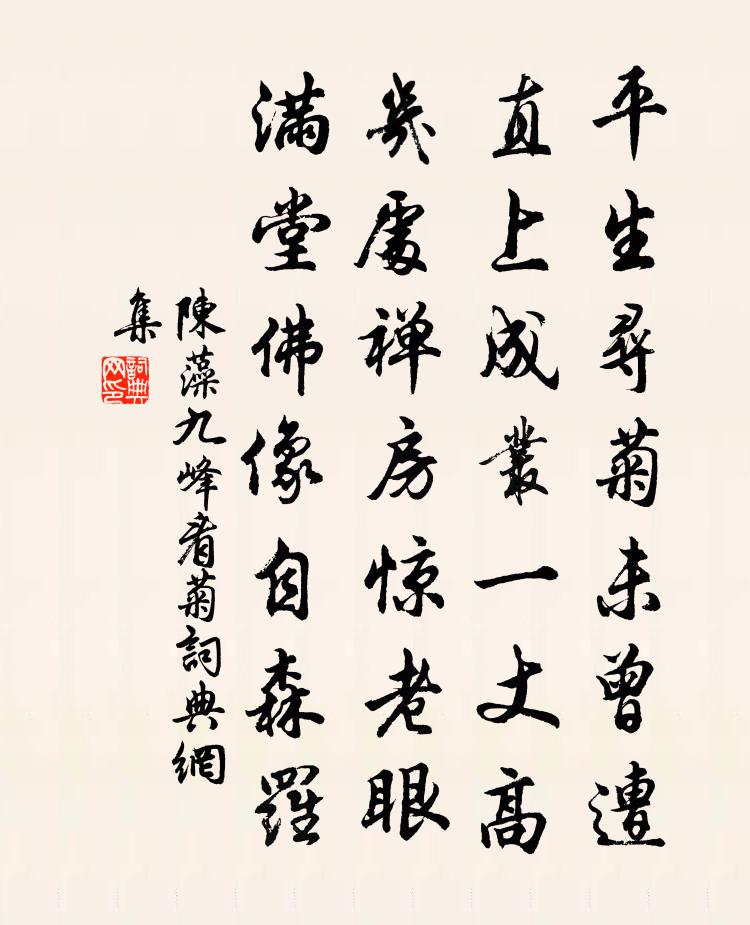 平生尋菊未曾遭
直上成叢一丈高
幾處禅房惊老眼
满堂佛像自森羅
陳藻九峰看菊詞典網
集
詞典
网印